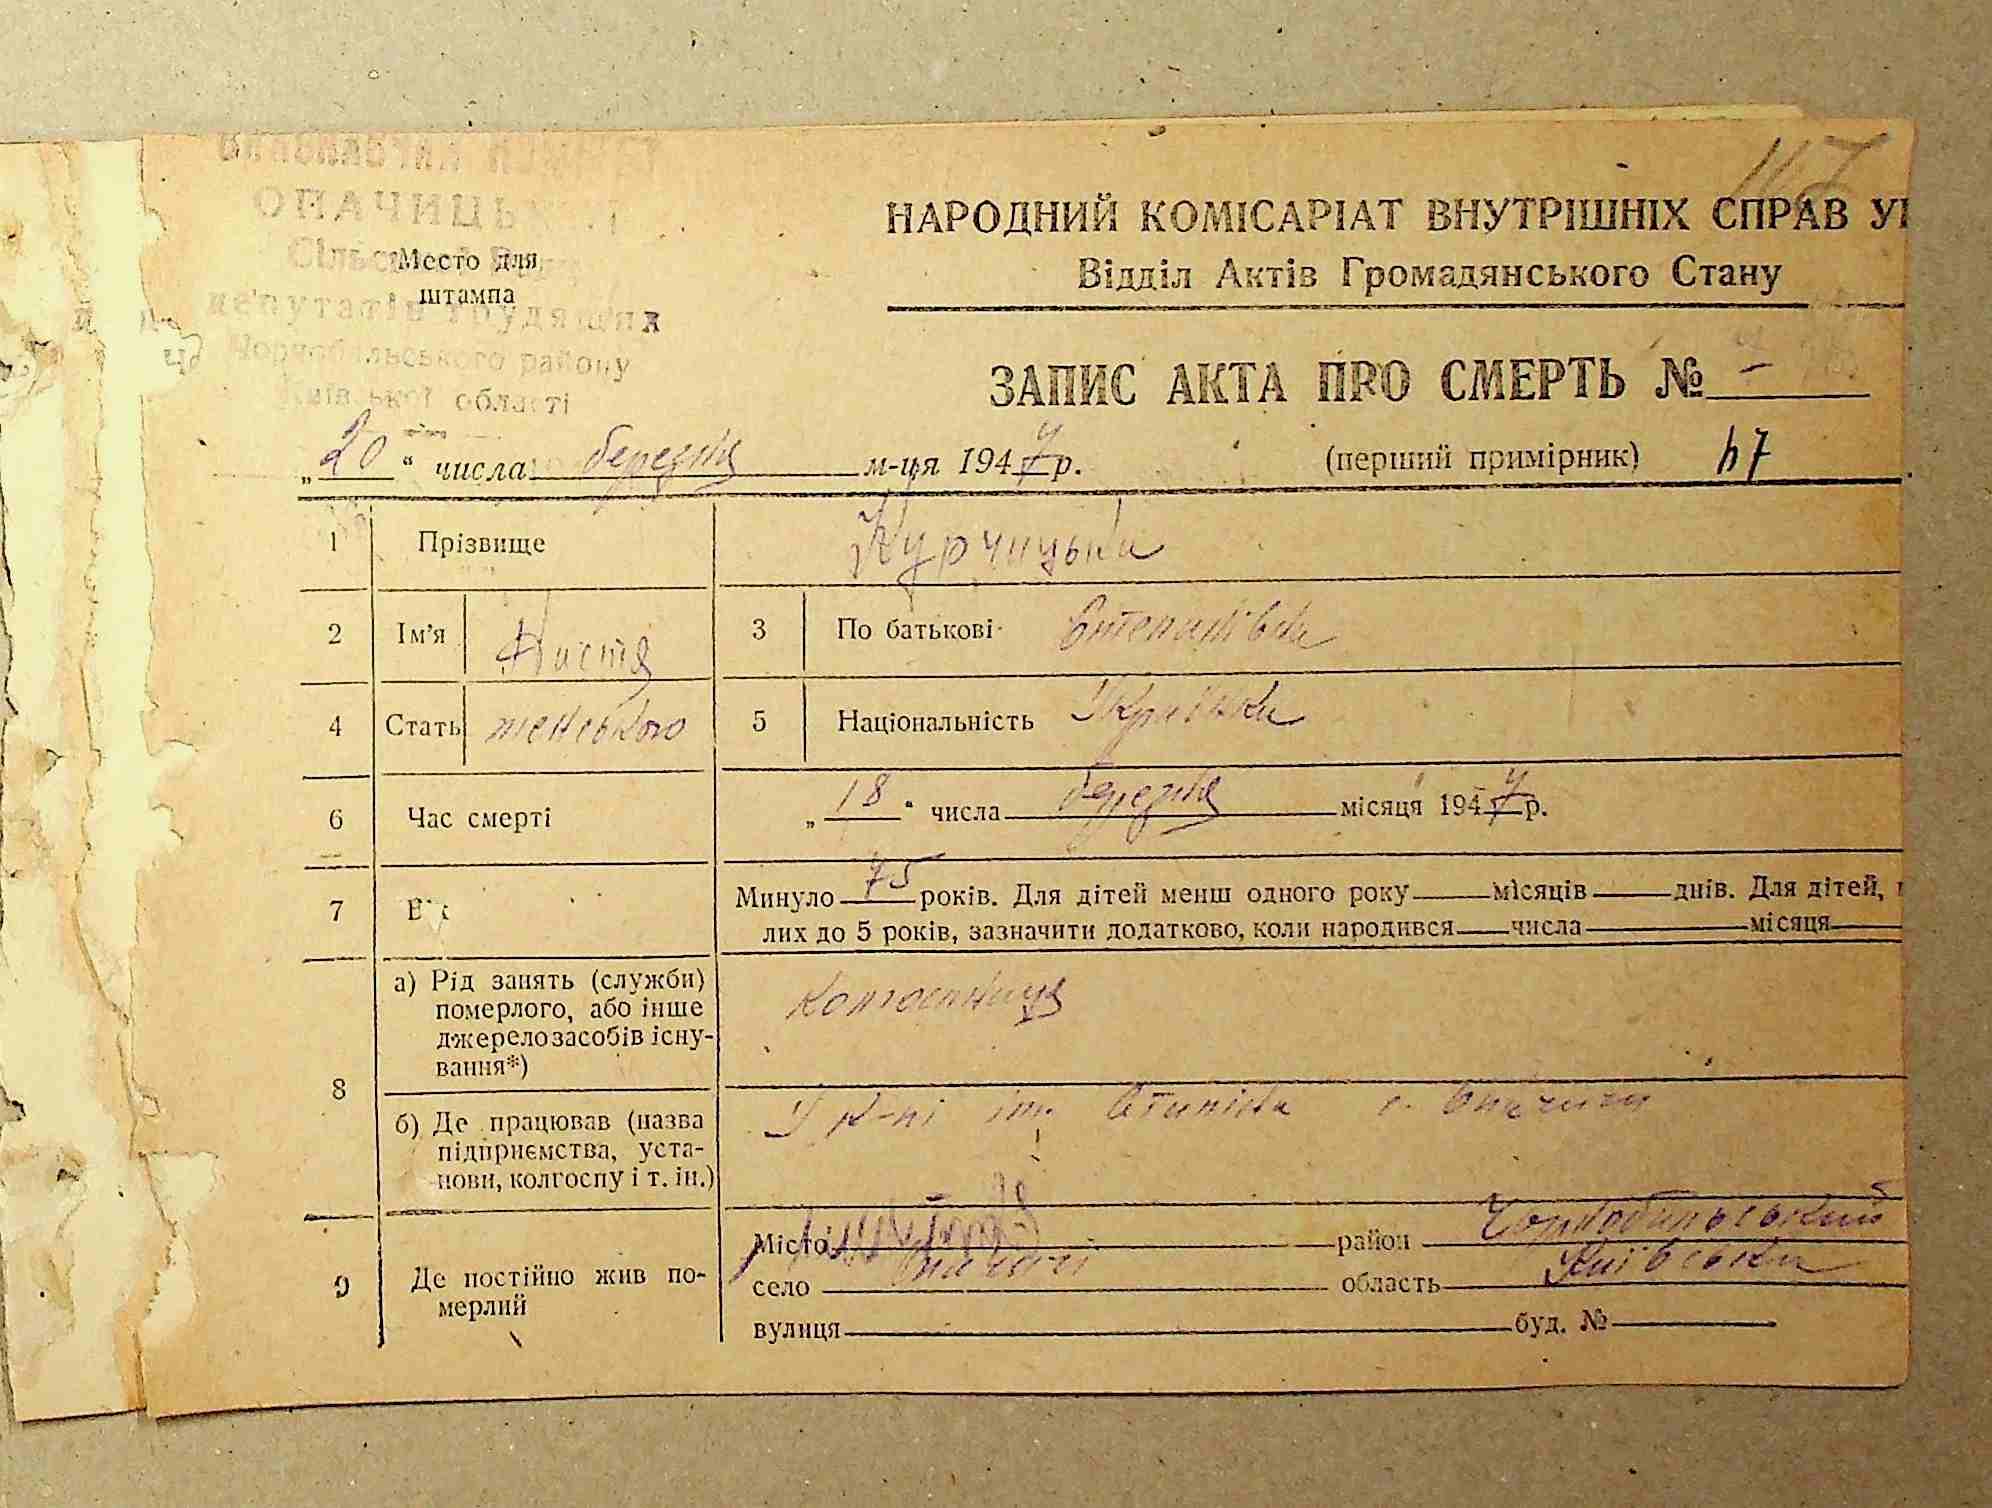 167
ОПАЧИЦЬК
Сільсь
депутатів трудящих
Чорнобильського району
Київської області
Место для
штампа
НАРОДНИЙ КОМІСАРІАТ ВНУТРІШНІХ СПРАВ
Відділ Актів Громадянського Стану
ЗАПИС АКТА ПРО СМЕРТЬ № 7
„20“ числа березня м-ця 1947 р. (перший примірник) 67
1 Прізвище Курчицька
2 Ім'я Настя 3 По батькові Остапівна
4 Стать женського 5 Національність Українка
6 Час смерті „18“ числа березня місяця 1947 р.
7 Вік Минуло 75 років. Для дітей менш одного року місяців днів. Для дітей,
лих до 5 років, зазначити додатково, коли народився числа місяця
8 а) Рід занять (служби)
померлого, або інше
джерело засобів існу-
вання*) колгоспниця
б) Де працював (назва
підприємства, уста-
нови, колгоспу і т. ін.) У к-пі ім. Сталіна с. Опачичи
9 Де постійно жив по-
мерлий
Місто район Чорнобильський
село Опачичі область Київська
вулиця буд. №